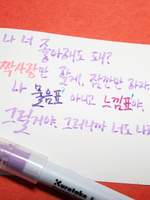 나 너 좀
좋아해도 돼?
짝사랑만 할게, 잠깐만 하자.
나 물음표 아니고 느낌표야,
그럴거야. 그러니까 너도 나
Kuretake